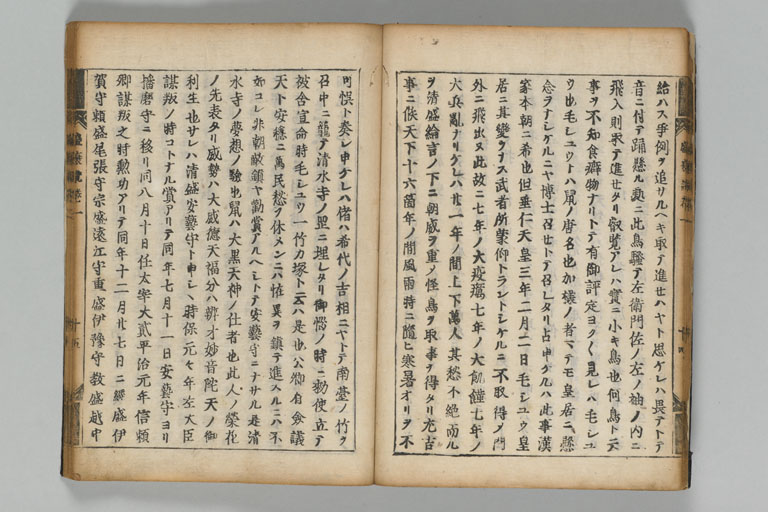 給ハス爭例ヲ追サルヘキ取テ進世ハヤト思ケレハ畏テトテ
音ニ付テ踊懸ル勲ニ此鳥騒テ左衛門佐ノ左ノ袖ノ内ニ
飛入則取テ進セタリ叡覧アレハ實ニ小キ鳥也何鳥ト云
事ヲ不知食癖物ナリトテ有御評定ヨクヨク見レハ毛シユ
ウ也毛シユウトハ鼠ノ唐名也加様ノ者マテモ皇居ニ懸
念ヲナシケルニヤ博士召セトテ召レタリ占申ケルハ此事漢
家本朝ニ希也但垂仁天皇三年二月二日毛シユウ皇
居ニ其變ヲナス武者所蒙仰トラントシケルニ不取得メ門
外ニ飛出ヌ此故ニ七年ノ大疫癘七年ノ大飢饉七年ノ
大兵亂ナリケレハ廿一年ノ間上下萬人其愁不絶而ル
ヲ清盛綸言ノ下ニ朝威ヲ重メ怪鳥ヲ取事ヲ得タリ尤吉
事ニ候天下十六箇年ノ間風雨時ニ隨ヒ寒暑オリヲ不
可誤ト奏シ申ケレハ偖ハ希代ノ吉相ニヤトテ南臺ノ竹ヲ
召中ニ籠テ清水寺ノ岡ニ埋レタリ御惱ノ時ニ勅使立テ
被含宣命時毛シユウ一竹カ塚ト云ハ是也公卿有僉議
天下安穏ニ萬民愁ヲ休メンニハ怪異ヲ鎮テ進スルニハ不
如コレ非朝敵頗ヤ勸賞アルヘシトテ安藝守ニナサル是清
水寺ノ夢想ノ驗也鼠ハ大黒天神ノ仕者也此人ノ榮花
ノ先表タリ威勢ハ大威徳天福分ハ辨才妙音陀天ノ御
利生也サレハ清盛安藝守ト申シヽ時保元々年左大臣
謀叛ノ時コトナル賞アリテ同年七月十一日安藝守ヨリ
播磨守ニ移リ同八月十日任太宰大貳平治元年信頼
卿謀叛之時勲功アリテ同年十二月廿七日ニ經盛伊
賀守頼盛尾張守宗盛遠江守重盛伊豫守教盛越中